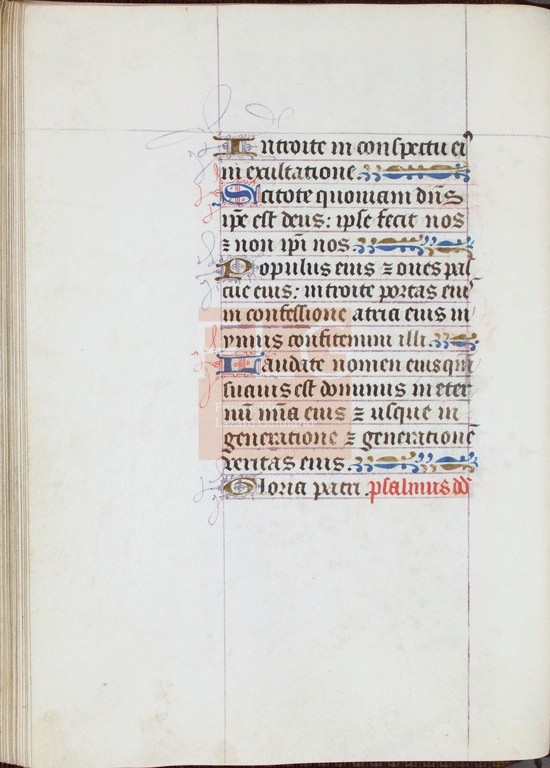 Introite in conspectu eiꝰ
in exultatione.
Scitote quoniam dn̄s
ip̄e est deus: ipse fecit nos
⁊ non ip̄i nos.
Populus eius ⁊ oues pas
cue eius: introite portas eiꝰ
in confessione atria eius in
ymnis confitemini illi.
Laudate nomen eius qm̄
suauis est dominus in eter
nū mīa eius ⁊ usque in
generatione ⁊ generationē
veritas eius.
Gloria patri. psalmus dd̄